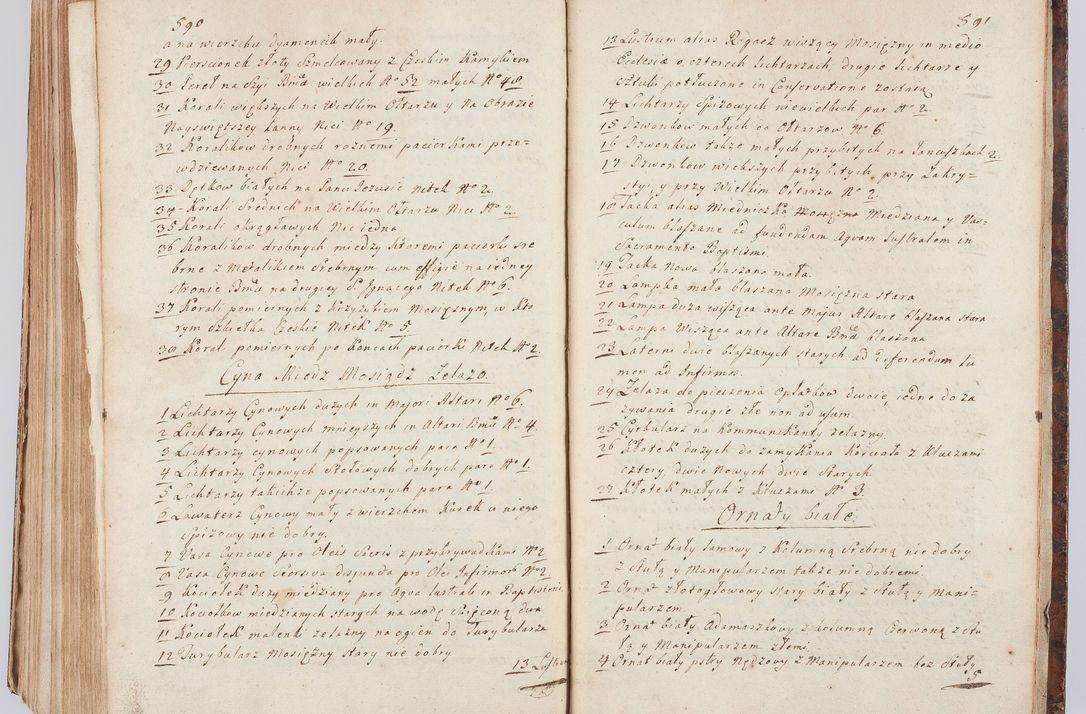 590
a na wierzchu dyamencik mały.
29 Pierscionek złoty Szmelcowany z Czeskim kamykiem
30 Pereł na Szyi Bmæ wielkich No 52 małych No 48.
31 Korali większych na Wielkim Ołtarzu y Na Obrazie
Nayswiętszey Panny Nici No 19.
32 Koralikow drobnych roznemi paciorkami prze-
wdziewanych Nici No 20.
33 Dętkow białych na Panu Jezusie Nitek No 2.
34 Korali Srednich na Wielkim Ołtarzu Nici No 2.
35 Korali okrągławych Nic iedna
36 Koralikow drobnych miedzy ktoremi paciorki sre
brne z Metalikiem Srebrnym cum effigie na iedney
stronie Bmæ na drugiey S. Ignacego Nitek No 6.
37 Korali pomiernych z Krzyżykiem Mosięznym, w kto
rym szkiełka Czeskie Nitek No 5.
38 Korali pomiernych po koncach paciorki Nitek No 2.
Cyna Miedz Mosiądz Zelazo.
1 Lichtarzy Cynowych duzych in Majori Altari No 6.
2 Lichtarzy Cynowych mnieyszych in Altari Bmæ No 4.
3 Lichtarzy cynowych popsowanych para No 1.
4 Lichtarzy Cynowych Stołowych dobrych para No 1.
5 Lichtarzy takichże popsowanych para No 1.
6 Lawaterz Cynowy mały z wierzchem Kurek u niego
Spizowy nie dobry.
7 Vasa Cynowe pro Oleis Sacris z przykrywadkami No 2
8 Vasa Cynowe Seorsiva disjuncta pro Olei Infirmor No 2
9 Kociołek duzy miedziany pro Aqva lustrali in Baptisterio
10 Kociołkow miedzianych starych na wodę Swięconą dwa
11 Kociołek malenki zelazny na ogien do Turybularza
12 Turybularz Mosięzny stary nie dobry
13 Lustrum
591
13 Lustrum alias wiszący Mosięzny in medio
Ecclesiæ o czterech lichtarzach, drugie lichtarze y
Sztuki potłuczone in Conservatione zostaią
14 Lichtarzy Spizowych niewielkich par No 2.
15 Dzwonkow małych do Ołtarzow No 6.
16 Dzwonkow takze małych przybitych na łancuszkach 2.
17 Dzwonkow większych przybitych przy Zakry-
styi, y przy Wielkim Ołtarzu No 2.
18 Tacka alias Miedniczka Mosięzna Miedziana y Vas-
culum blaszane ad fundendam Aqvam lustralem in
Sacramento Baptismi.
19 Tacka Nowa blaszana mała.
20 Lampka mała blaszana Mosięzna stara
21 Lampa duza wisząca ante Majus Altare blaszana stara
22 Lampa Wisząca ante Altare Bmæ blaszana
23 Laterni dwie blaszanych starych ad differendum lu
men ad Infirmos.
24 Zelaza do pieczenia Opłatkow dwoie, iedno do za
zywania drugie złe non ad usum.
25 Cyrkularz na Kommunikanty zelazny.
26 Kłotek duzych do zamykania Koscioła z Kluczami
cztery dwie Nowych dwie Starych.
27 Kłotek małych z Kluczami No 3.
Ornaty białe.
1 Ornat biały lamowy z Kolumną Srebrną nie dobry
z Stułą y Manipularzem takze nie dobremi.
2 Ornat złotogłowowy stary biały z Stułą y Mani-
pularzem.
3 Ornat biały Adamaszkowy z Kolumną Czerwoną z Stu
łą y Manipularzem złemi.
4 Ornat biały pstry Nędzowy z Manipularzem bez Stuły
5